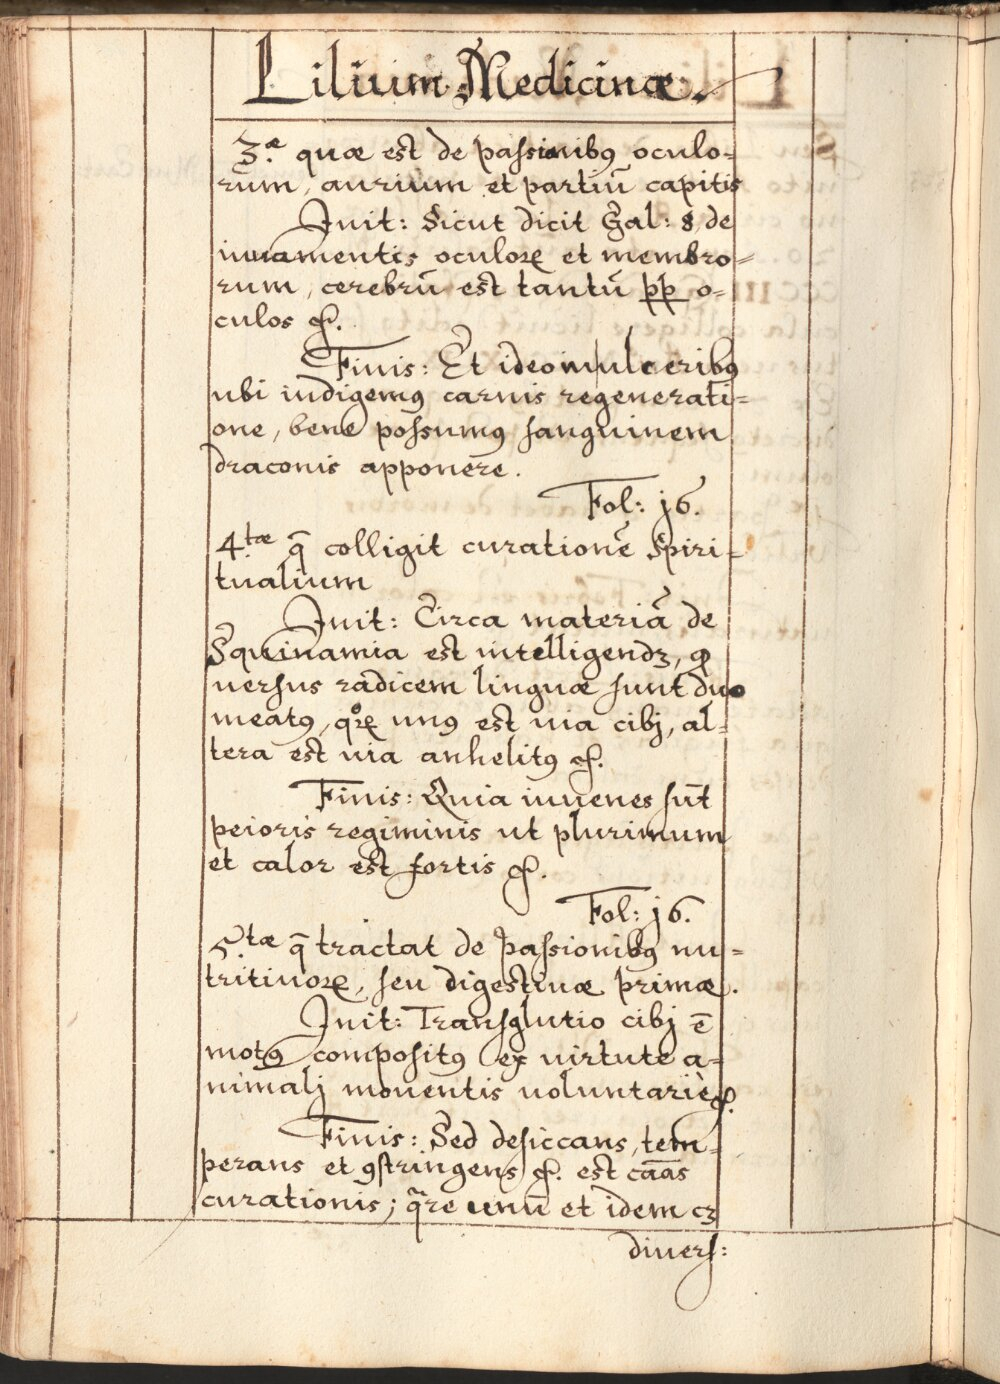 Lilium Medicinæ.
3.æ quæ est de paßionibꝰ oculo=
rum, aurium et partiū capitis
Init: Sicut dicit Gal: 8 de
iuuamentis oculoꝝ et membro=
rum, cerebrū est tantū ꝓꝑ o=
culos &.
Finis: Et ideo in ulceribꝰ
ubi indigemꝰ carnis regenerati=
one, bene poßumꝰ sanguinem
draconis apponere.
Fol: 16.
4.tæ q̄ colligit curationē Spiri=
tualium
Init: Circa materiā de
Squinamia est intelligendꝫ, ꝙ
uersus radicem linguæ sunt duo
meatꝰ, qͦꝝ unꝰ est uia cibj, al=
tera est uia anhelitꝰ &.
Finis: Quia iuuenes sūt
peioris regiminis ut plurimum
et calor est fortis &.
Fol: 16.
5.tæ q̄ tractat de paßionibꝰ nu=
tritiuoꝝ, seu digestiuæ primæ.
Init: Transglutio cibj ē
motꝰ compositꝰ ex uirtute a=
nimalj mouentis uoluntariè &.
Finis: Sed desiccans, tem=
perans et ꝯstringens &. est cāas
curationis; qͣre unū et idem cꝫ
diuers: